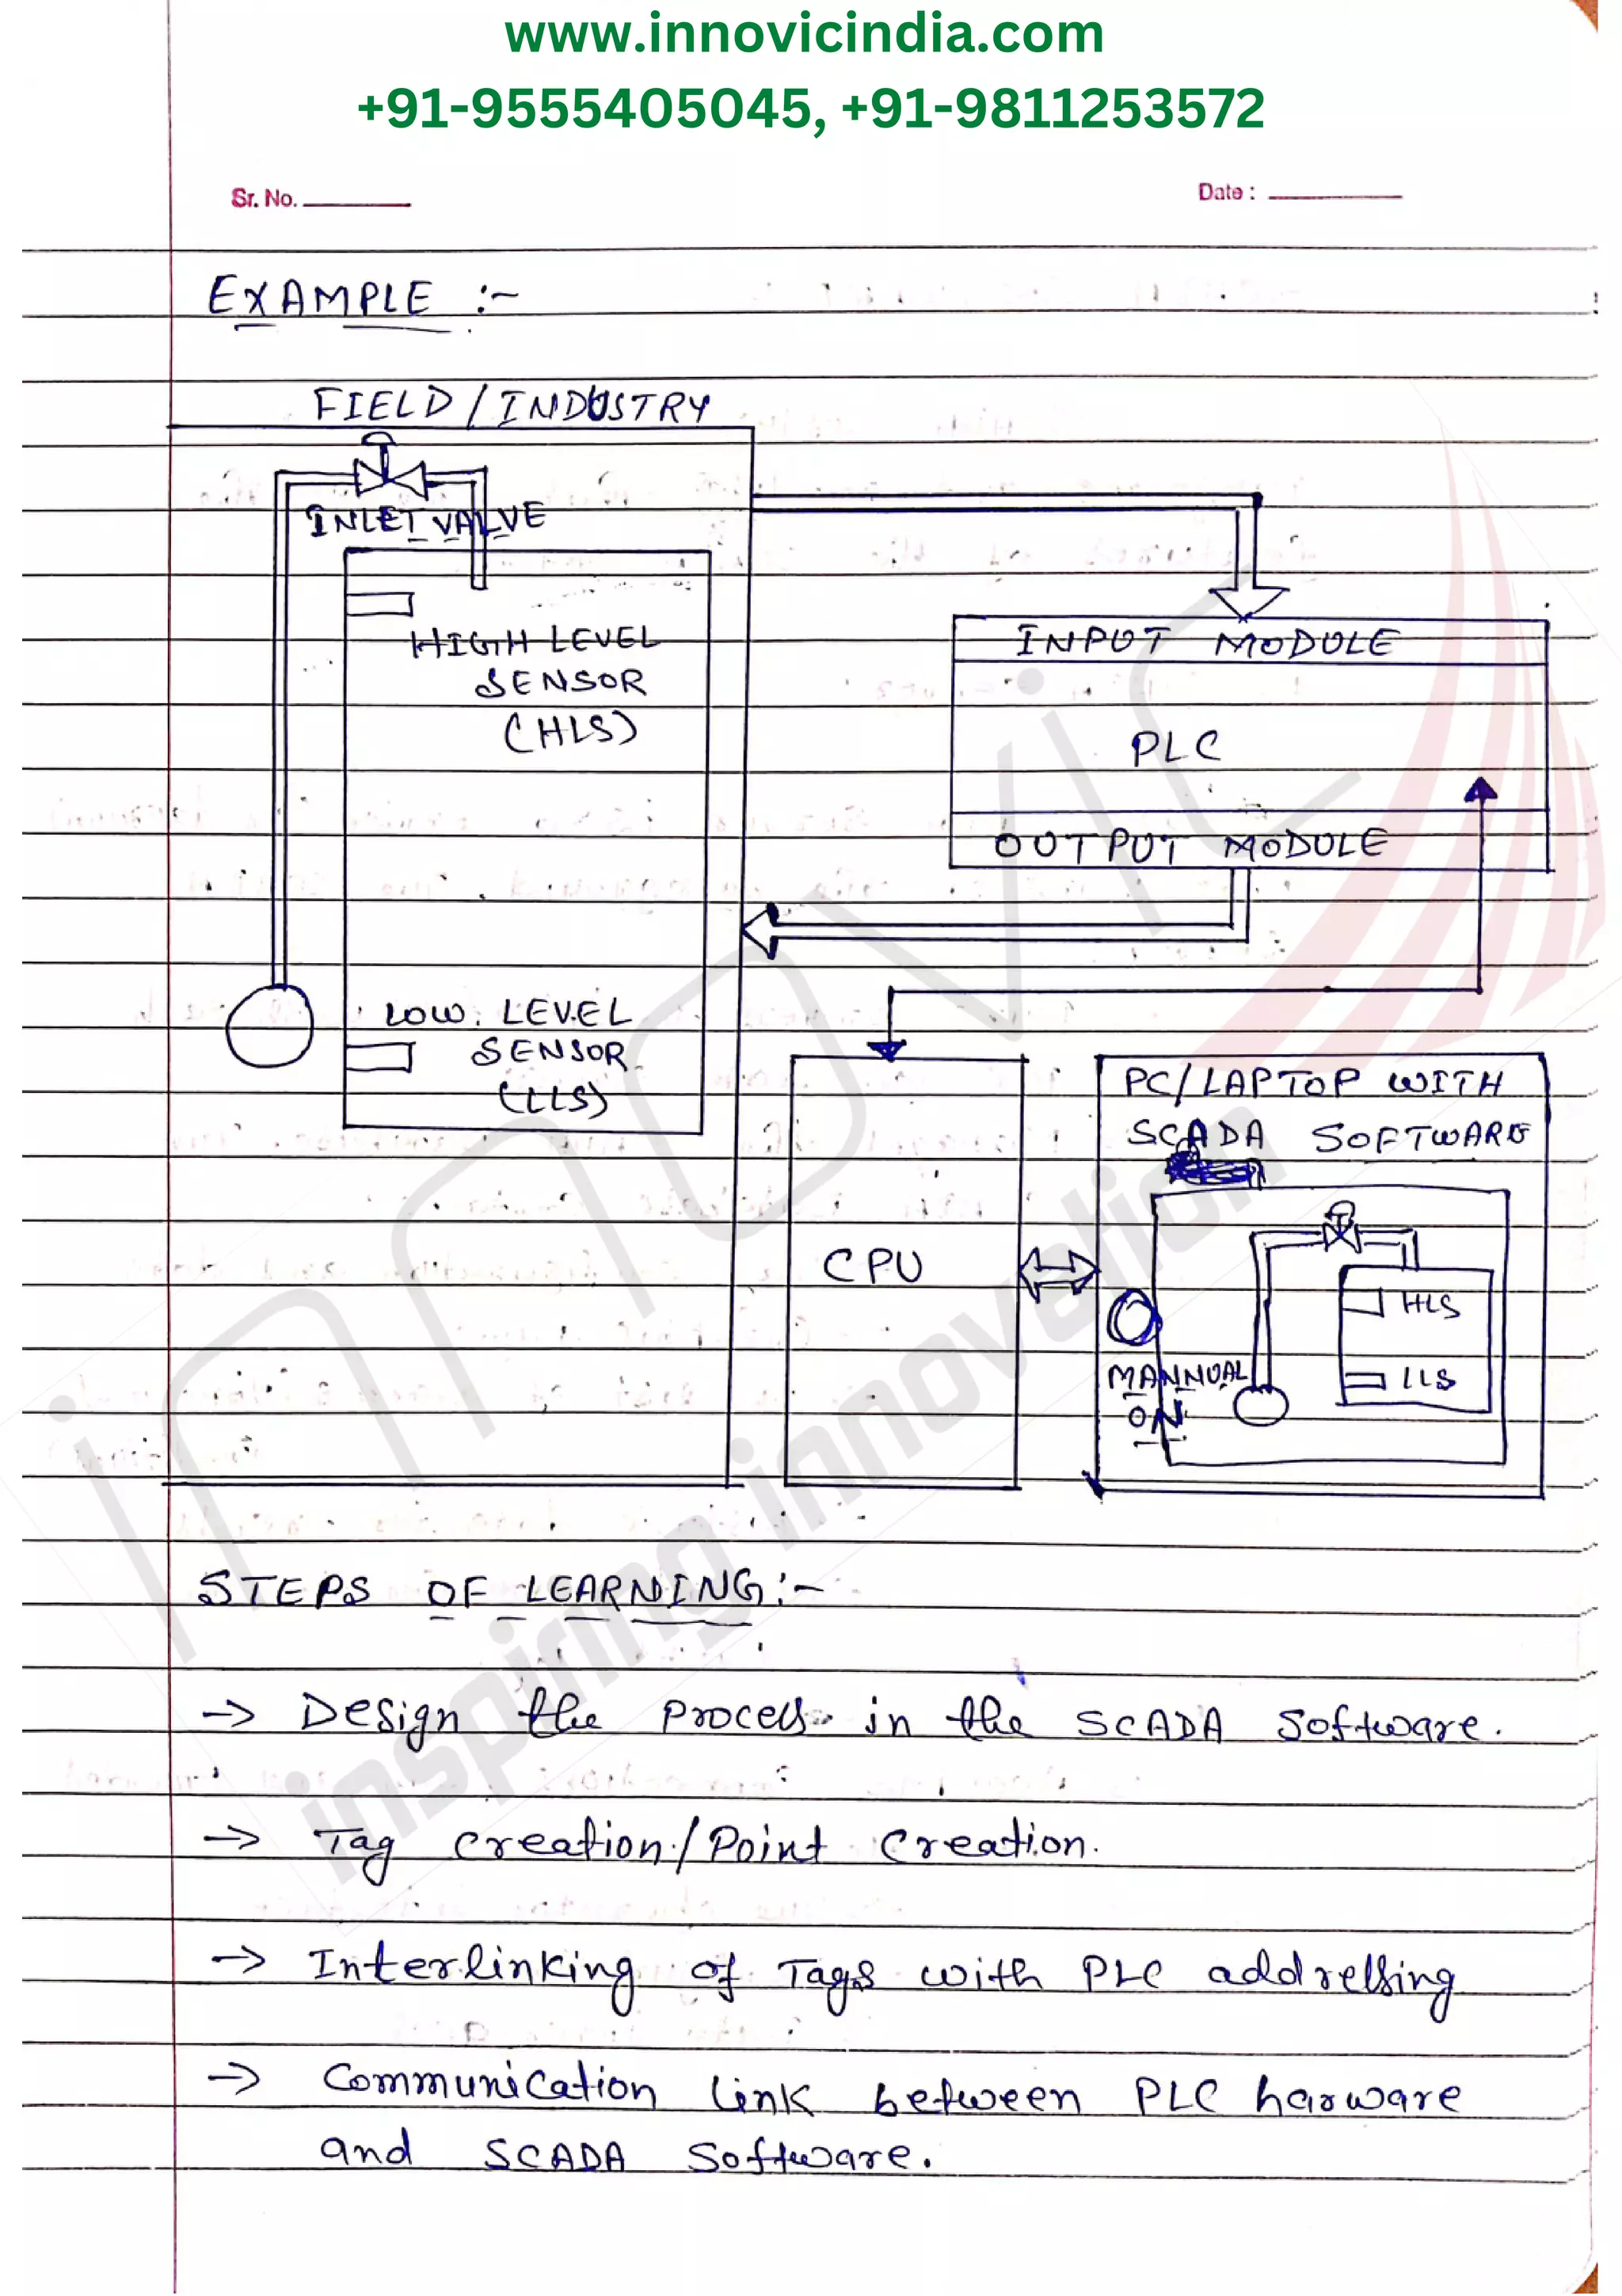 www.innovicindia.com
+91-9555405045, +91-9811253572
Sr. No.
Date :
EXAMPLE :-
FIELD / INDUSTRY
INLET VALVE
HIGH LEVEL
SENSOR
(HLS)
LOW LEVEL
SENSOR
(LLS)
INPUT MODULE
PLC
OUTPUT MODULE
CPU
PC/LAPTOP WITH
SCADA SOFTWARE
HLS
LLS
MANNUAL
ON
STEPS OF LEARNING :-
→ Design the Process in the SCADA Software.
→ Tag Creation / Point Creation.
→ Interlinking of Tags with PLC addressing
→ Communication Link between PLC harware
and SCADA Software.
innovic
inspiring innovation